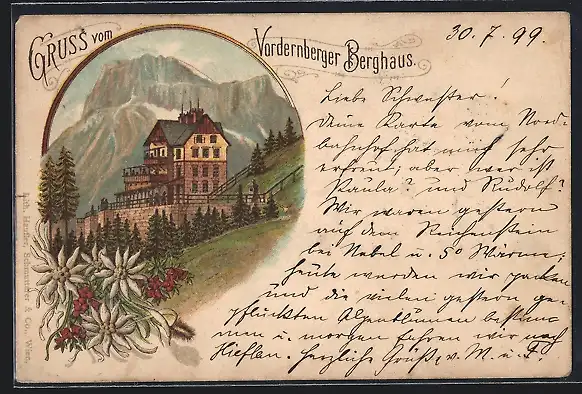 GRUSS vom
Vordernberger Berghaus.
30. 7. 99.
Liebe Schwester!
Deine Karte vom Nord-
bahnhof hat mich sehr
erfreut; aber wer ist
Paula? und Rudolf?
Wir waren gestern
auf dem Reichenstein
bei Nebel u. 5° Wärme;
heute werden wir
und die vielen gestern ge-
pflückten Alpenblumen
u. morgen fahren wir nach
Hieflau. Herzliche Grüße v. M. u.
& Co., Wien.